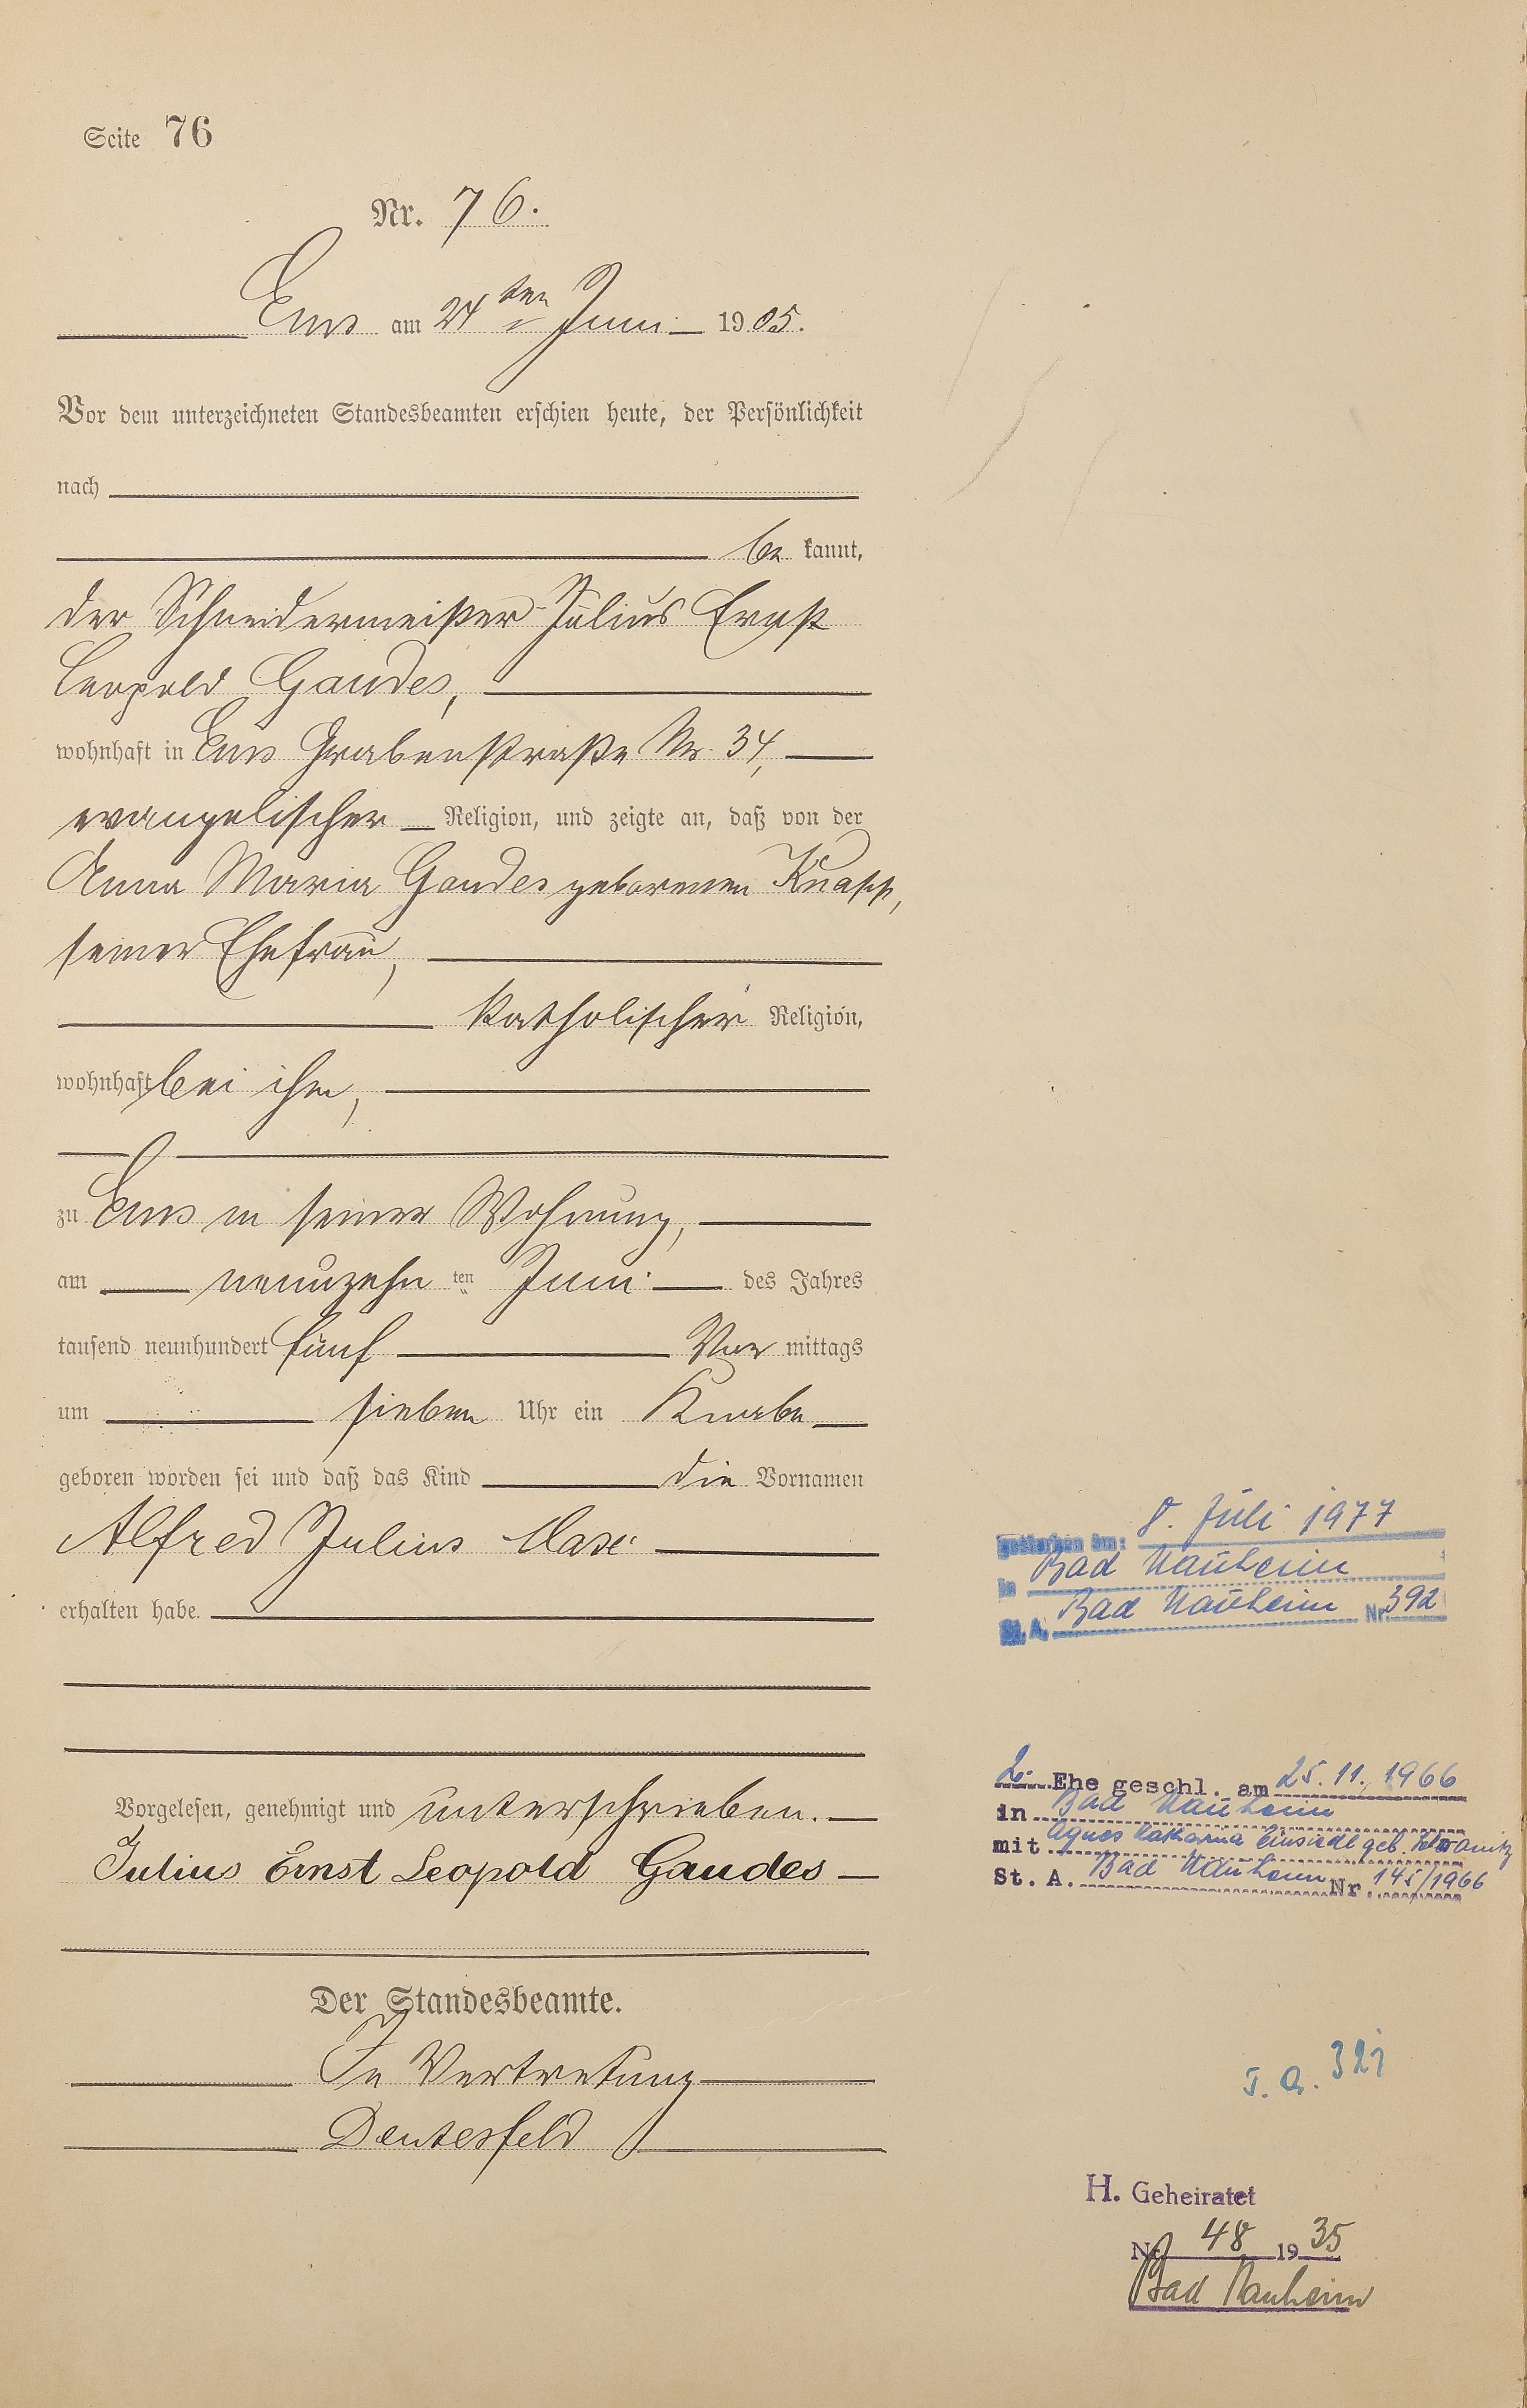 Seite 76
Nr. 76.
Ems am 24ten Juni 1905.
Vor dem unterzeichneten Standesbeamten erschien heute, der Persönlichkeit
nach
be kannt,
der Schneidermeister Julius Ernst
Leopold Gandes,
wohnhaft in Ems Grabenstraße Nr. 34,
evangelischer Religion, und zeigte an, daß von der
Anna Maria Gandes geborenen Knapp,
seiner Ehefrau,
katholischer Religion,
wohnhaft bei ihm,
zu Ems in seiner Wohnung,
am neunzehn ten Juni des Jahres
tausend neunhundert fünf Vor mittags
um sieben Uhr ein Knabe
geboren worden sei und daß das Kind die Vornamen
Alfred Julius
erhalten habe.
Vorgelesen, genehmigt und unterschrieben.
Julius Ernst Leopold Gandes
Der Standesbeamte.
In Vertretung
Deutesfeld
gestorben am: 8. Juli 1977
in Bad Nauheim
St. A. Bad Nauheim Nr. 392
2. Ehe geschl. am 25.11.1966
in Bad Nauheim
mit Agnes Katharina Einsiedl geb.
St. A. Bad Nauheim Nr. 145/1966
321
H. Geheiratet
Nr. 48 1935
Bad Nauheim